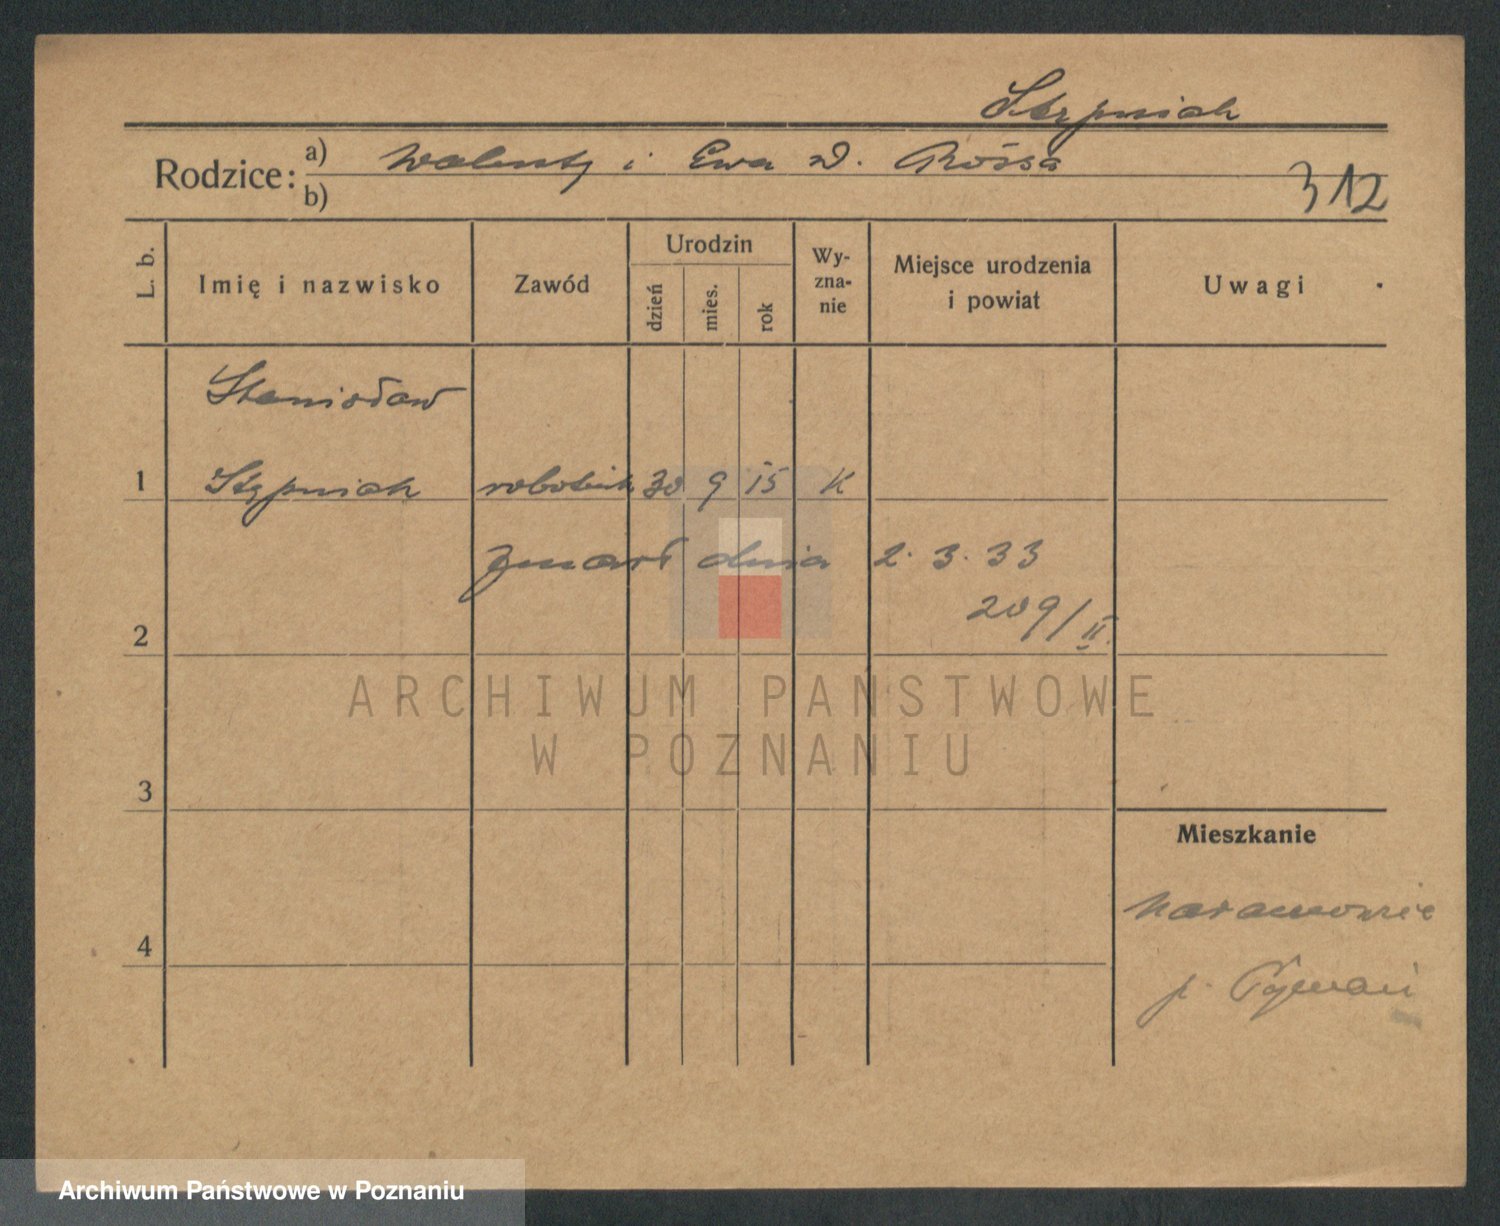 Stępniak
Rodzice: a) Walenty i Ewa d. Róssa
b)
312
L. b.
Imię i nazwisko
Zawód
Urodzin
dzień
mies.
rok
Wy-
zna-
nie
Miejsce urodzenia
i powiat
Uwagi
Stanisław
1 Stępniak robotnik 30 9 15 K
zmarł dnia 2. 3. 33
209/II.
2
ARCHIWUM PAŃSTWOWE
W POZNANIU
3
Mieszkanie
Naramowice
4
p. Poznań
Archiwum Państwowe w Poznaniu